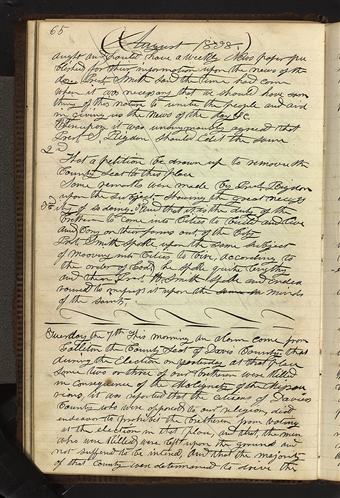 65
(August 1838.)
aught an Could have a weekly News paper pu-
blished for their information upon the news of the
day. Prest Smith said the time had come
when it was necessary that we should have som
thing of this nature to unite the people and aid
in giving us the News of the day &c.
Whereupon it was unanymously agreed that
Prest S. Rigdon should Edit the same
2nd
That a petition be drawn up to remove the
County Seat to this place
Some remarks were made by Prest Rigdon
upon the subject showing the great necess
3rd ity of so doing. That it is the duty of the
brethren to come into Cities to build and live
and Carry on their farms out of the City
Prest. Smith spoke upon the same subject
of mooving into Cities to live, according to
the order of God, he spoke quite lengthy
and then Prest H. Smith spoke and Endea
voured to impress it upon the minds
of the saints.
Tuesday the 7th This morning an alarm come from
Gallatin the County Seat of Davis County that
during the Election on yesterday at that place
Some two or three of our brethren were killed
in consequence of the Malignity of the Missou
rians, it was reported that the citizens of Davies
County who were opposed to our religion, did
endeavor to prohibit the brethren from voting
at the election in that place, and that the men
who were killed were left upon the ground and
not suffered to be interred And that the majority
of that County were determined to drive the